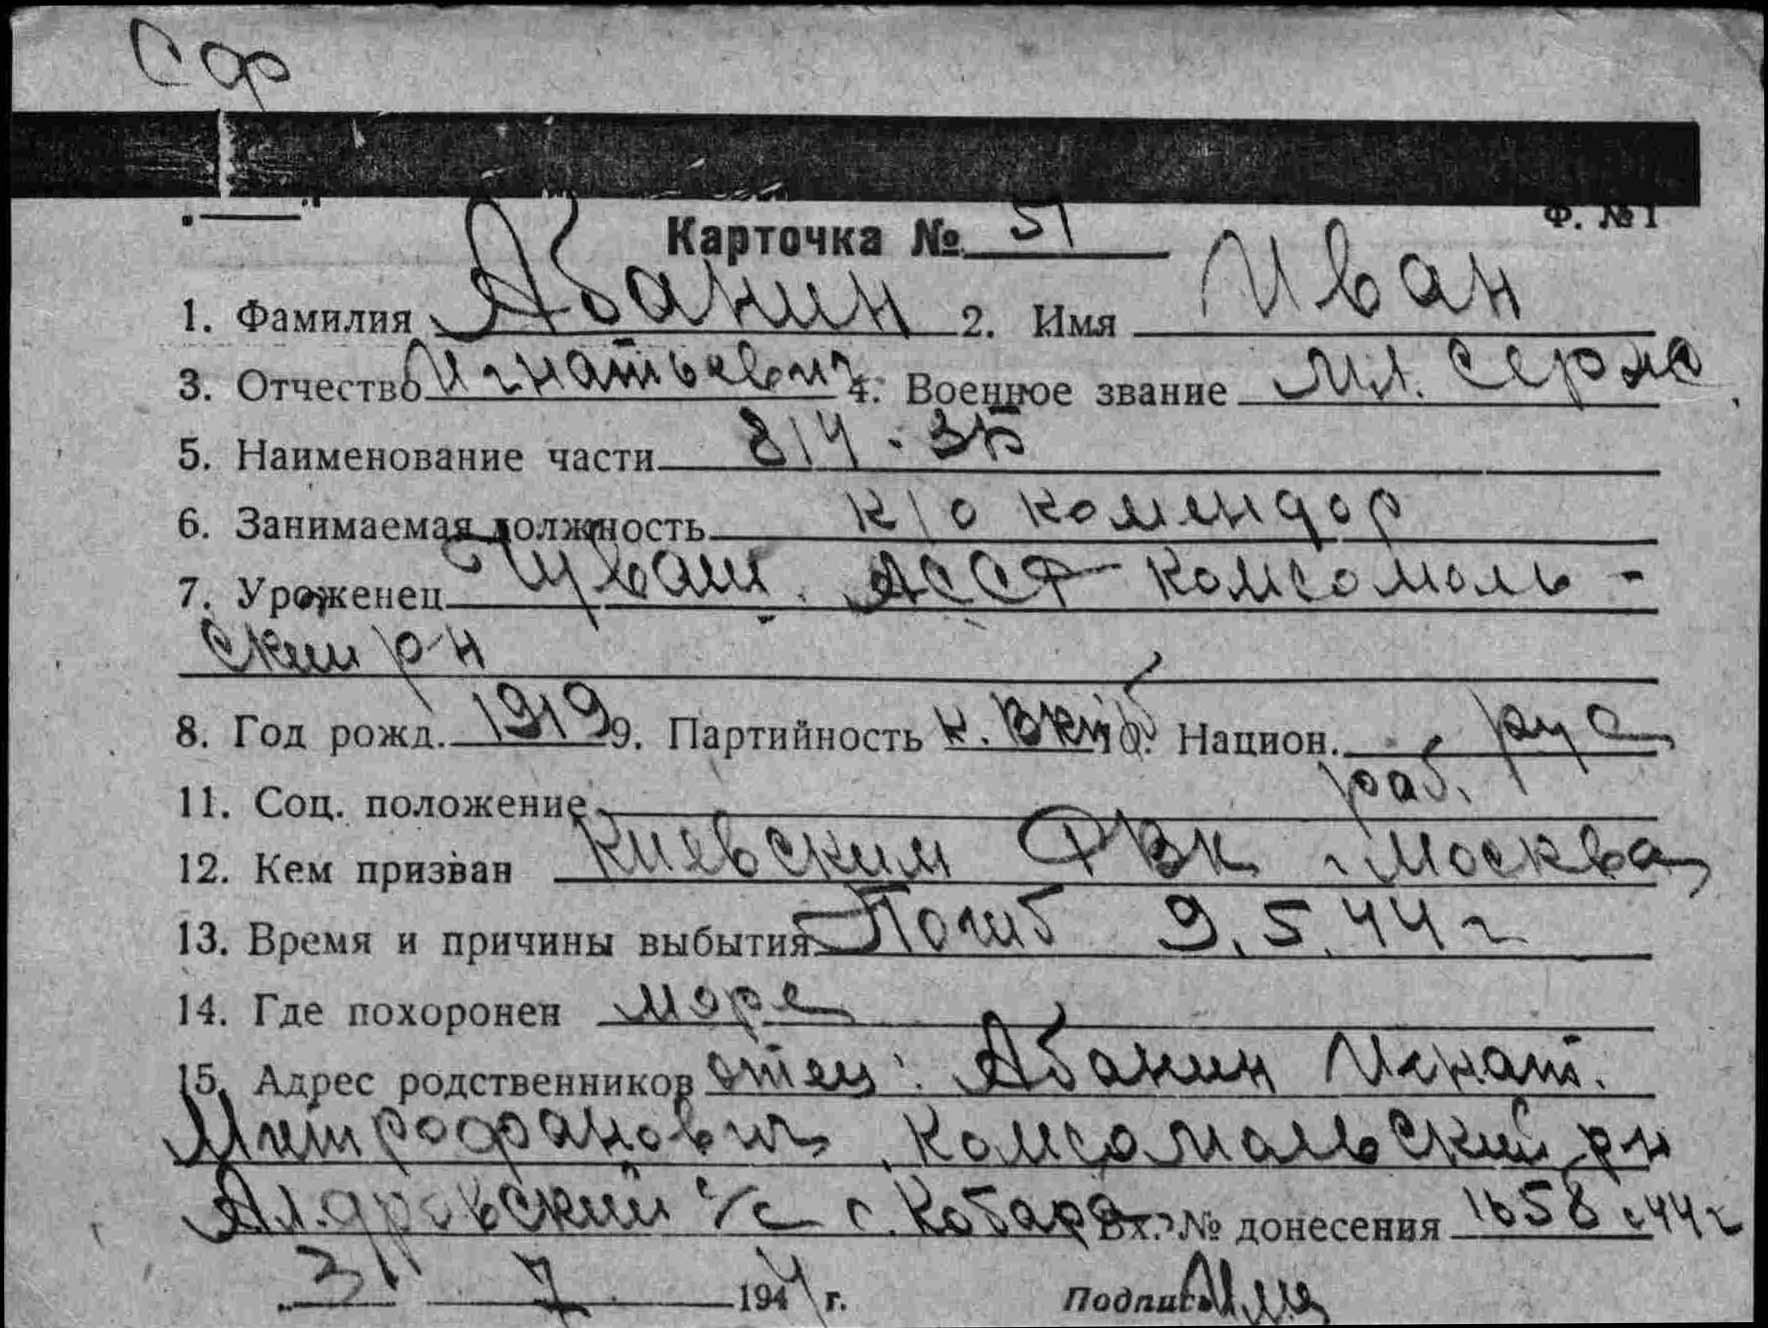 Сф
Ф. № 1
Карточка № 51
1. Фамилия Абанин 2. Имя Иван
3. Отчество Игнатьевич 4. Военное звание мл. серж
5. Наименование части 814 · ЗБ
6. Занимаемая должность к/о комендор
7. Уроженец Чуваш. АССР Комсомоль-
ский р-н
8. Год рожд. 1919 9. Партийность к. ВКПб 10. Национ. рус
11. Соц. положение раб.
12. Кем призван Киевским РВК г. Москва
13. Время и причины выбытия Погиб 9.5.44 г
14. Где похоронен море
15. Адрес родственников отец: Абанин Игнат.
Митрофанович, Комсомольский р-н
с/с с. Вх. № донесения 1658 с 44 г
7 1944 г. Подпись